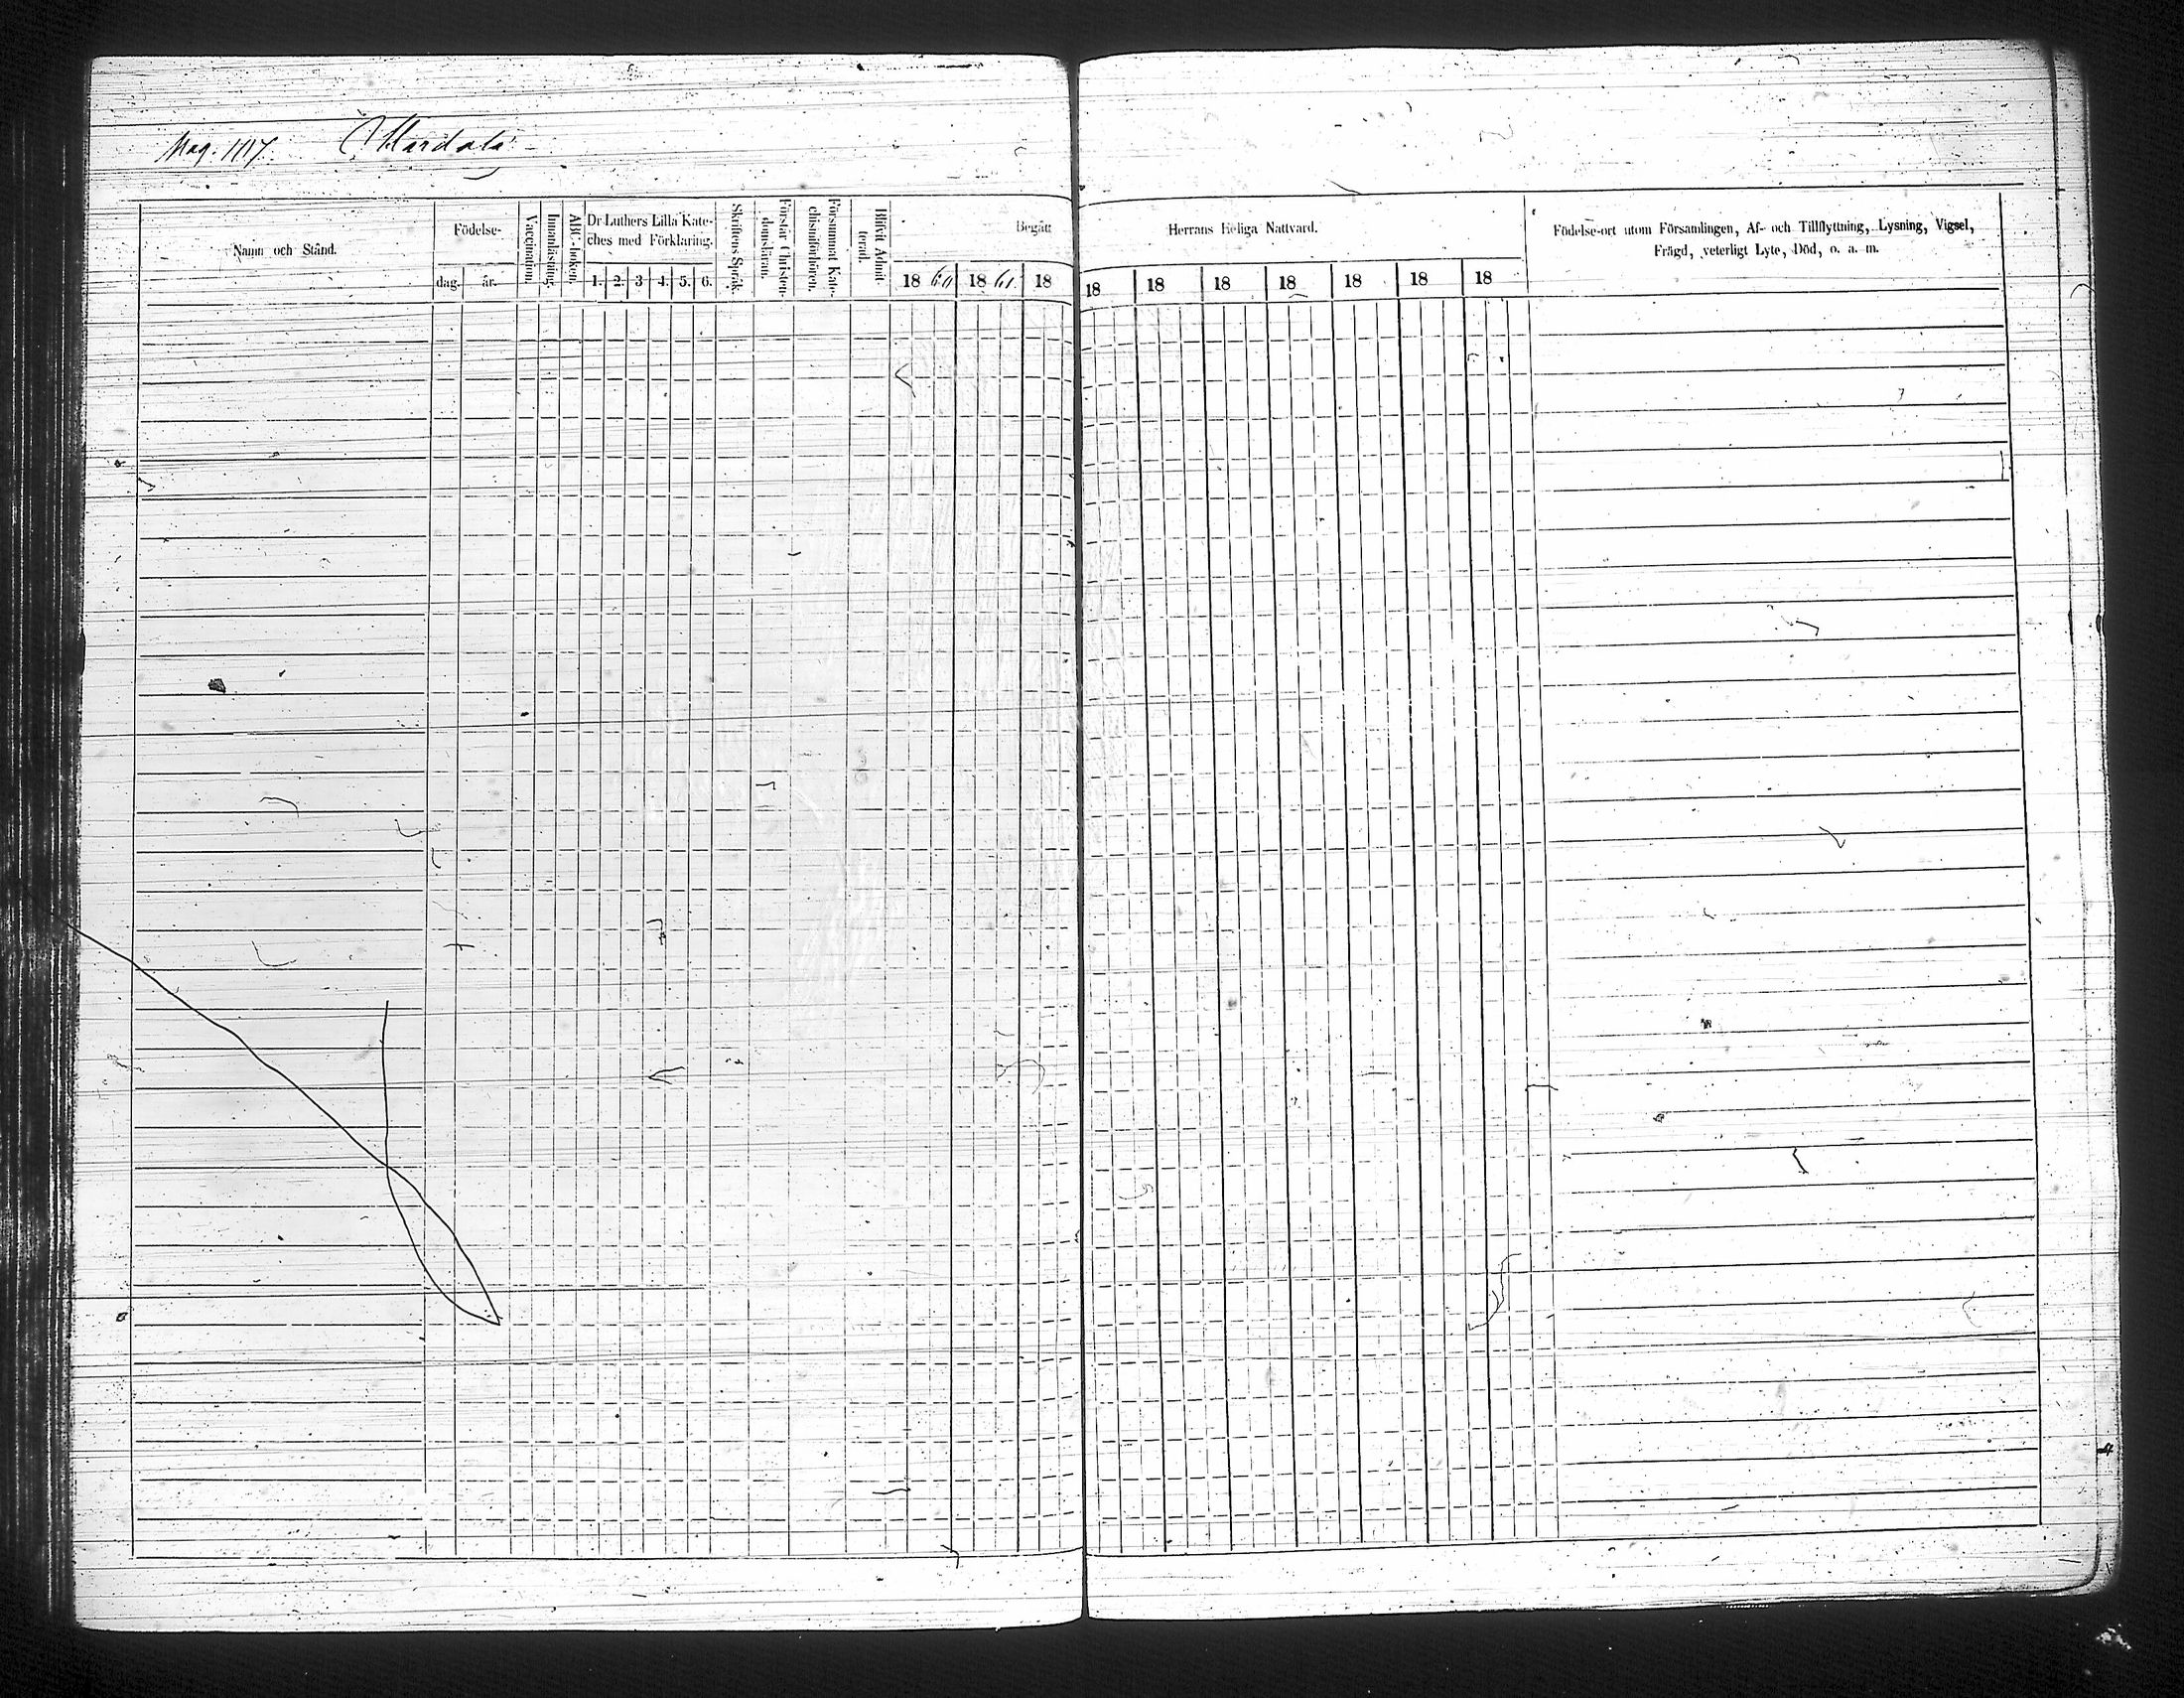 Mag. 1117. Mardala
Namn och Stånd.
Födelse-
dag. år.
Vaccination.
Innanläsning.
ABC-boken.
Dr Luthers Lilla Kate-
ches med Förklaring.
1. 2. 3 4. 5. 6.
Skriftens Språk.
Förstår Christen-
domsläran.
Försummat Kate-
chismiförhören.
Blifvit Admit-
terad.
Begått Herrans Heliga Nattvard.
18 60 18 61. 18 18 18 18 18 18 18 18
Födelse-ort utom Församlingen, Af- och Tillflyttning, Lysning, Vigsel,
Frägd, veterligt Lyte, Död, o. a. m.